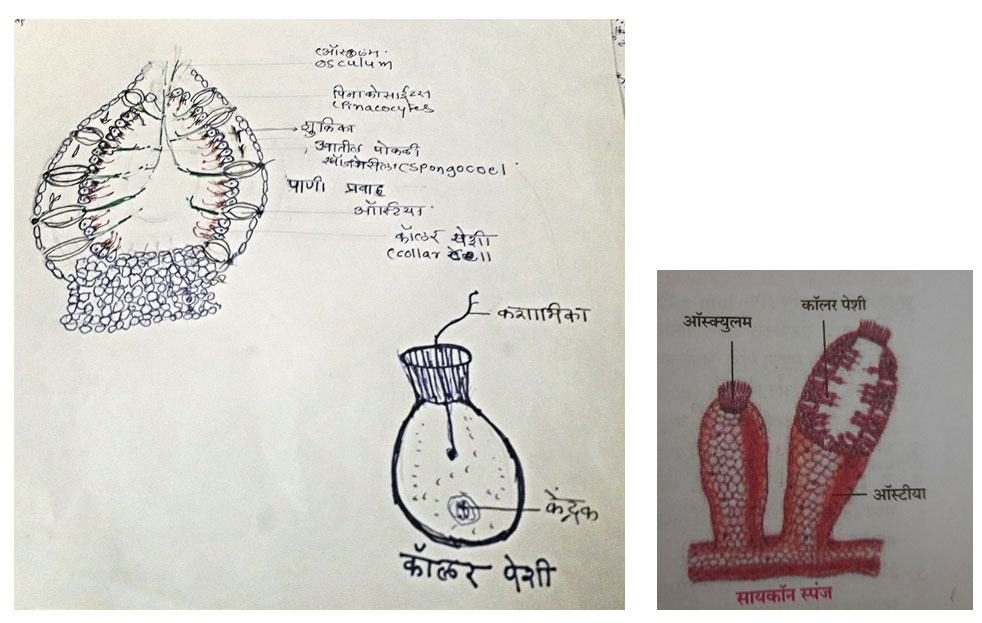 ऑस्कुलम
osculum
पिनाकोसाईटस
(Pinacocytes
शुकिका
आतील पोकळी
(Spongocoel
पाणी प्रवाह
ऑस्टिया
कॉलर पेशी
(collar पेशी)
कशाभिका
केंद्रक
कॉलर पेशी
ऑस्क्युलम
कॉलर पेशी
ऑस्टीया
सायकॉन स्पंज